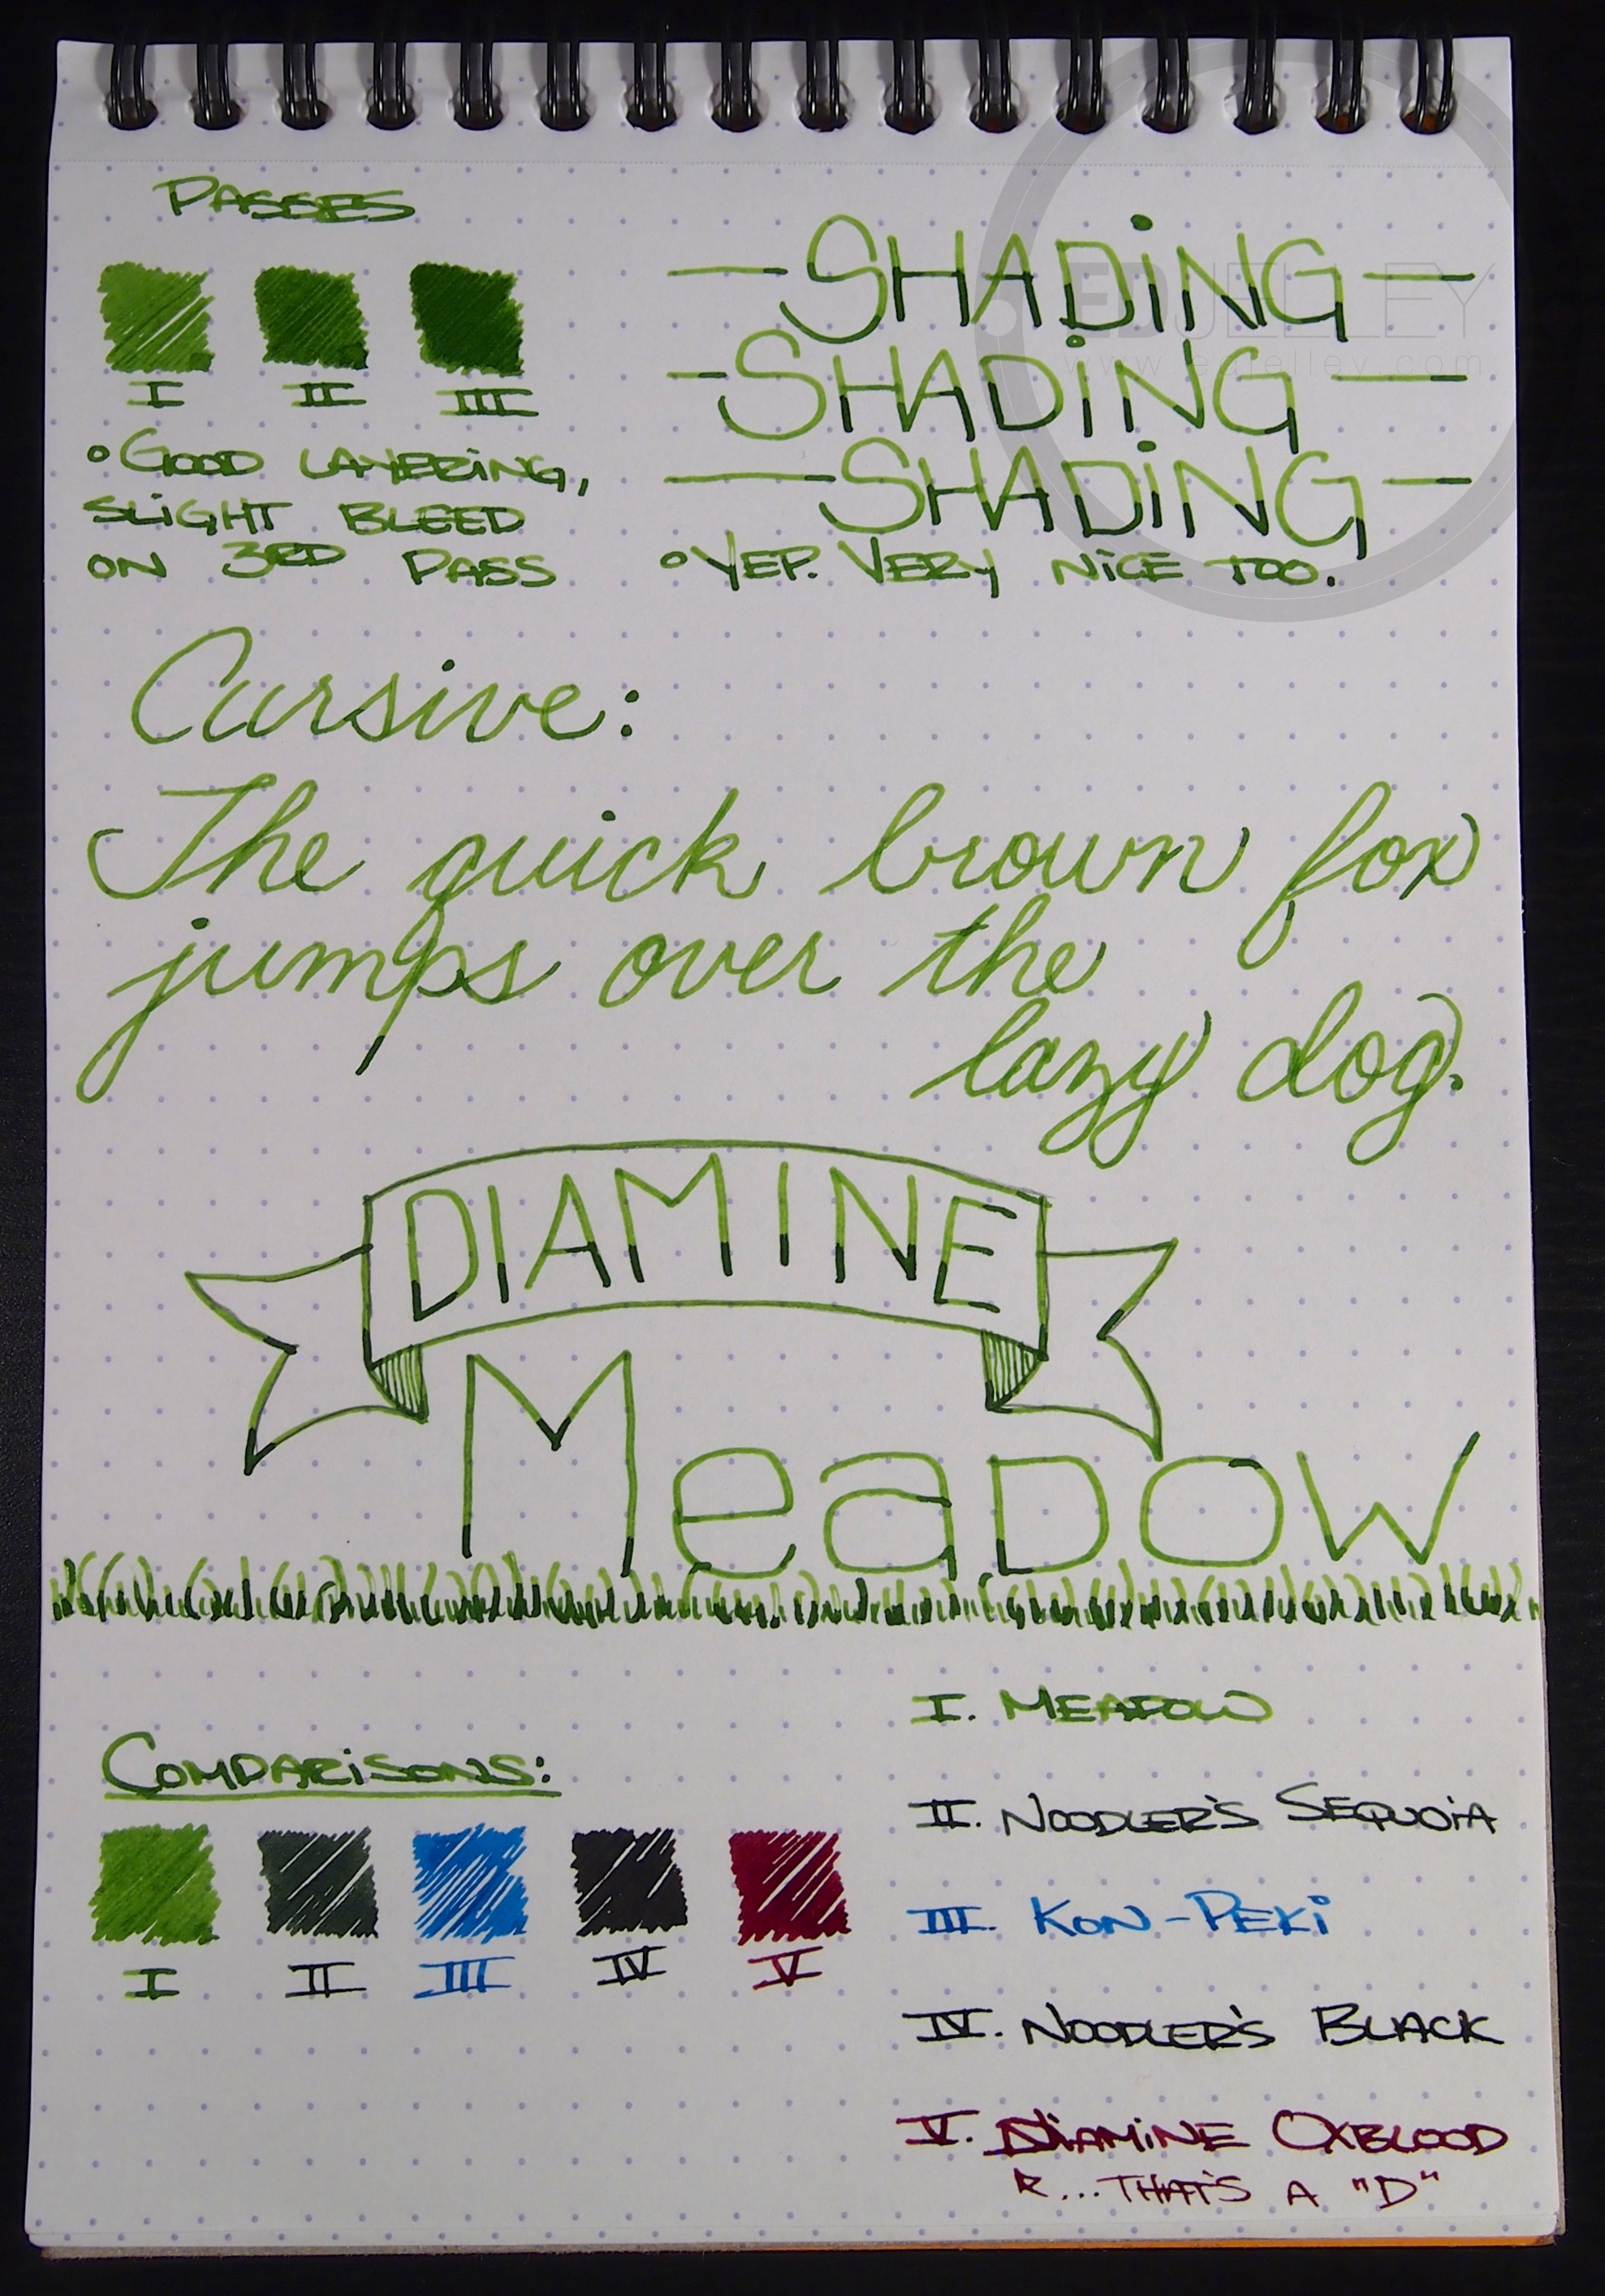 PASSES
I II III
°GOOD LAYERING,
SLiGHT BLEED
ON 3RD PASS
—SHADiNG—
—SHADiNG—
—SHADiNG—
°YEP. VERY NiCE TOO.
EDJELLEY
www.edjelley.com
Cursive:
The quick brown fox
jumps over the
lazy dog.
DIAMINE
MeaDow
COMPARiSONS:
I II III IV V
I. MEADOW
II. NOODLER'S SEQUOiA
III. KON-PEKi
IV. NOODLER'S BLACK
V. DiAMiNE OXBLOOD
...THAT'S A "D"